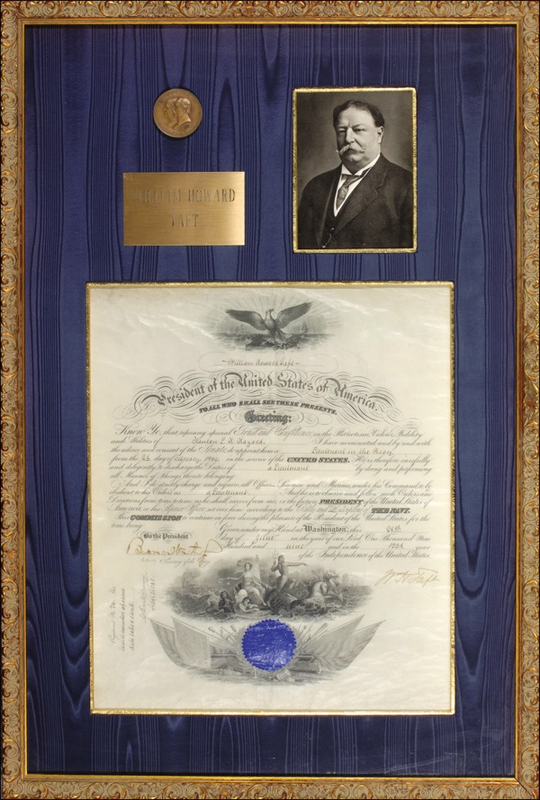 WILLIAM HOWARD
TAFT
William Howard Taft
President of the United States of America.
TO ALL WHO SHALL SEE THESE PRESENTS,
Greeting:
Know Ye, that reposing special Trust and Confidence in the Patriotism, Valor, Fidelity
and Abilities of Stanton L. H. Hazard I have nominated and by and with
the advice and consent of the Senate do appoint him a Lieutenant in the Navy
from the day of February 1909 in the service of the UNITED STATES. He is therefore carefully
and diligently to discharge the duties of a Lieutenant by doing and performing
all Manner of things thereto belonging.
And I do strictly charge and require all Officers, Seamen and Marines under his Command to be
obedient to his Orders as a Lieutenant. And he is to observe and follow such Orders and
Directions from time to time as he shall receive from me, or the future PRESIDENT of the United States of
America or his Superior Officer set over him, according to the Rules and Discipline of THE NAVY.
This COMMISSION to continue in force during the pleasure of the President of the United States for the
time being.
Given under my Hand at Washington, this
By the President day of June in the year of our Lord One Thousand Nine
Hundred and nine and in the 133rd year
of the Independence of the United States.
Secretary of the Navy
Wm H Taft